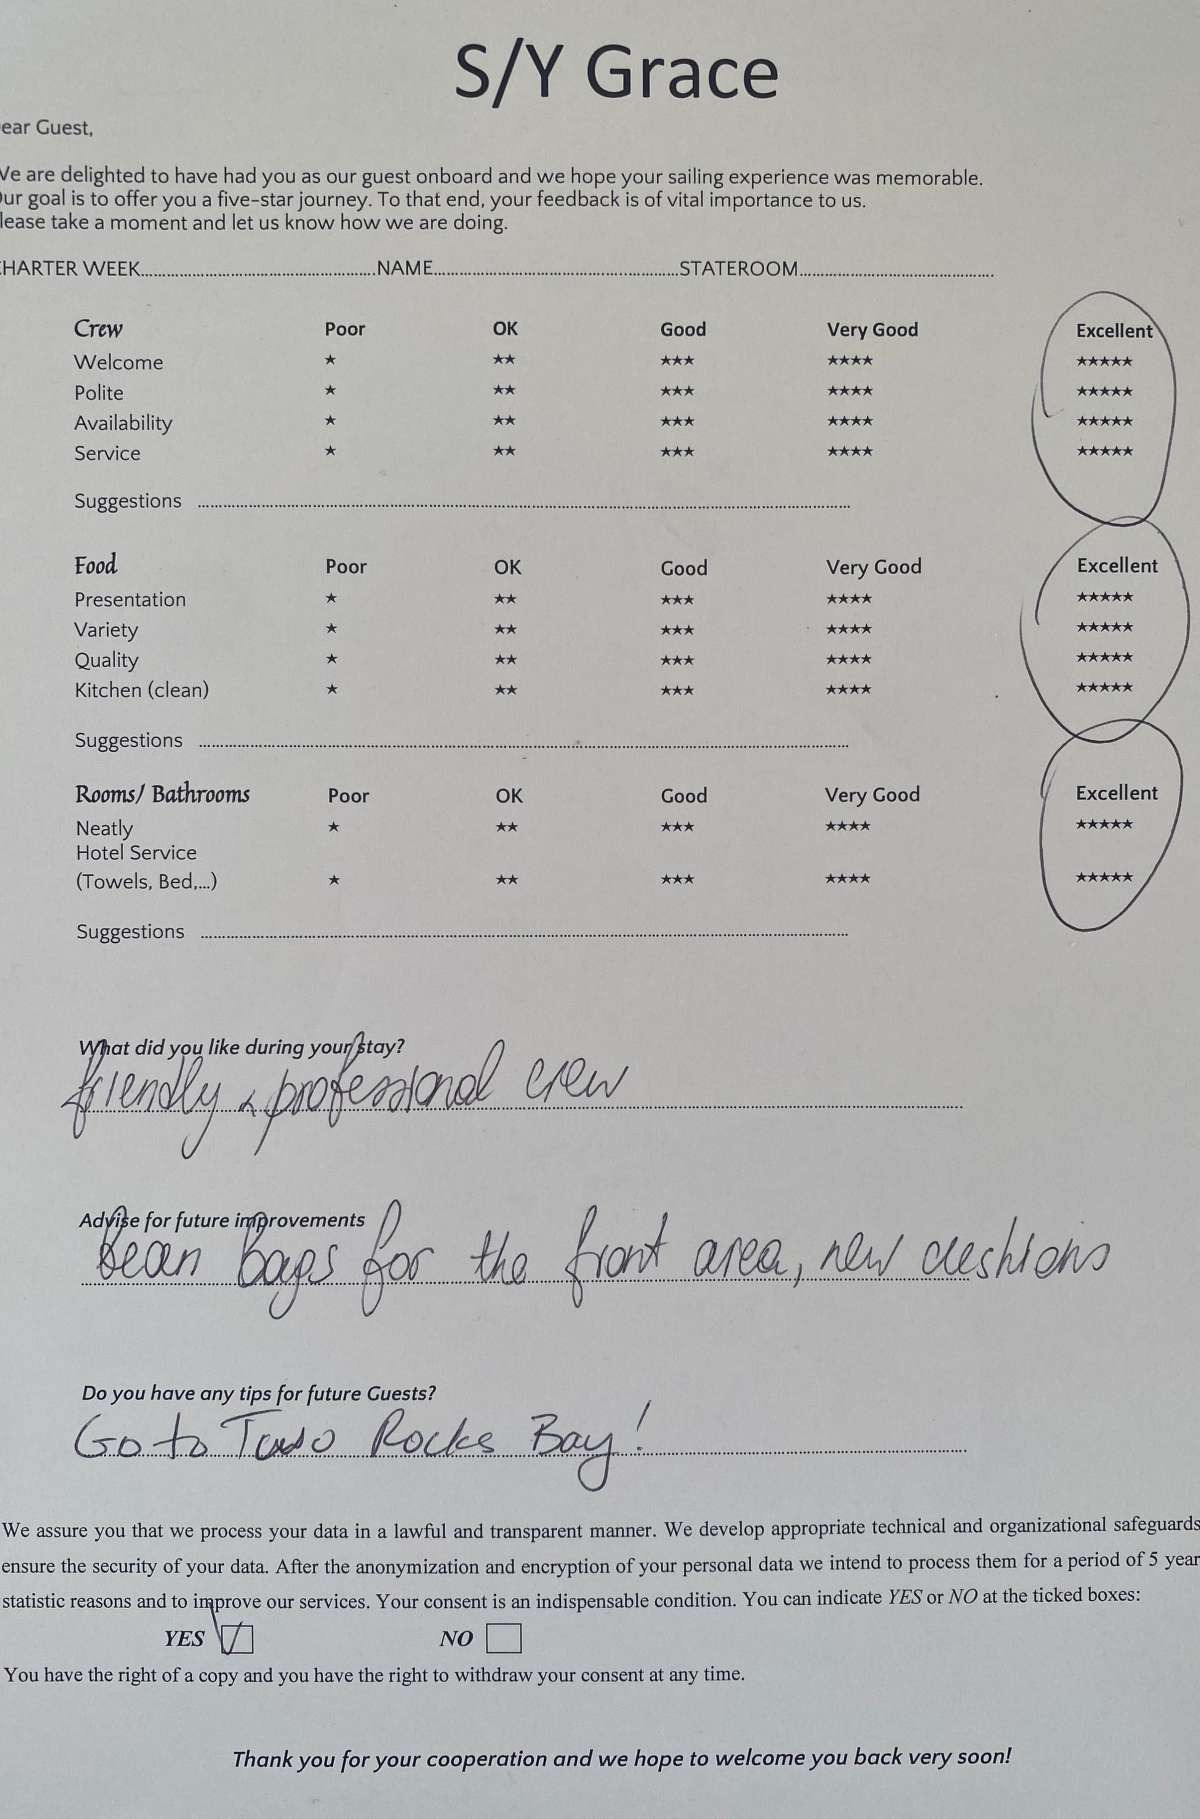 S/Y Grace
ear Guest,
We are delighted to have had you as our guest onboard and we hope your sailing experience was memorable.
Our goal is to offer you a five-star journey. To that end, your feedback is of vital importance to us.
lease take a moment and let us know how we are doing.
CHARTER WEEK..................NAME..................STATEROOM..................
Crew Poor OK Good Very Good Excellent
Welcome ★ ★★ ★★★ ★★★★ ★★★★★
Polite ★ ★★ ★★★ ★★★★ ★★★★★
Availability ★ ★★ ★★★ ★★★★ ★★★★★
Service ★ ★★ ★★★ ★★★★ ★★★★★
Suggestions ..................
Food Poor OK Good Very Good Excellent
Presentation ★ ★★ ★★★ ★★★★ ★★★★★
Variety ★ ★★ ★★★ ★★★★ ★★★★★
Quality ★ ★★ ★★★ ★★★★ ★★★★★
Kitchen (clean) ★ ★★ ★★★ ★★★★ ★★★★★
Suggestions ..................
Rooms/ Bathrooms Poor OK Good Very Good Excellent
Neatly ★ ★★ ★★★ ★★★★ ★★★★★
Hotel Service
(Towels, Bed,...) ★ ★★ ★★★ ★★★★ ★★★★★
Suggestions ..................
What did you like during your stay?
friendly & professional crew
Advise for future improvements
bean bags for the front area, new cushions
Do you have any tips for future Guests?
Go to Rocks Bay!
We assure you that we process your data in a lawful and transparent manner. We develop appropriate technical and organizational safeguards
ensure the security of your data. After the anonymization and encryption of your personal data we intend to process them for a period of 5 year
statistic reasons and to improve our services. Your consent is an indispensable condition. You can indicate YES or NO at the ticked boxes:
YES NO
You have the right of a copy and you have the right to withdraw your consent at any time.
Thank you for your cooperation and we hope to welcome you back very soon!